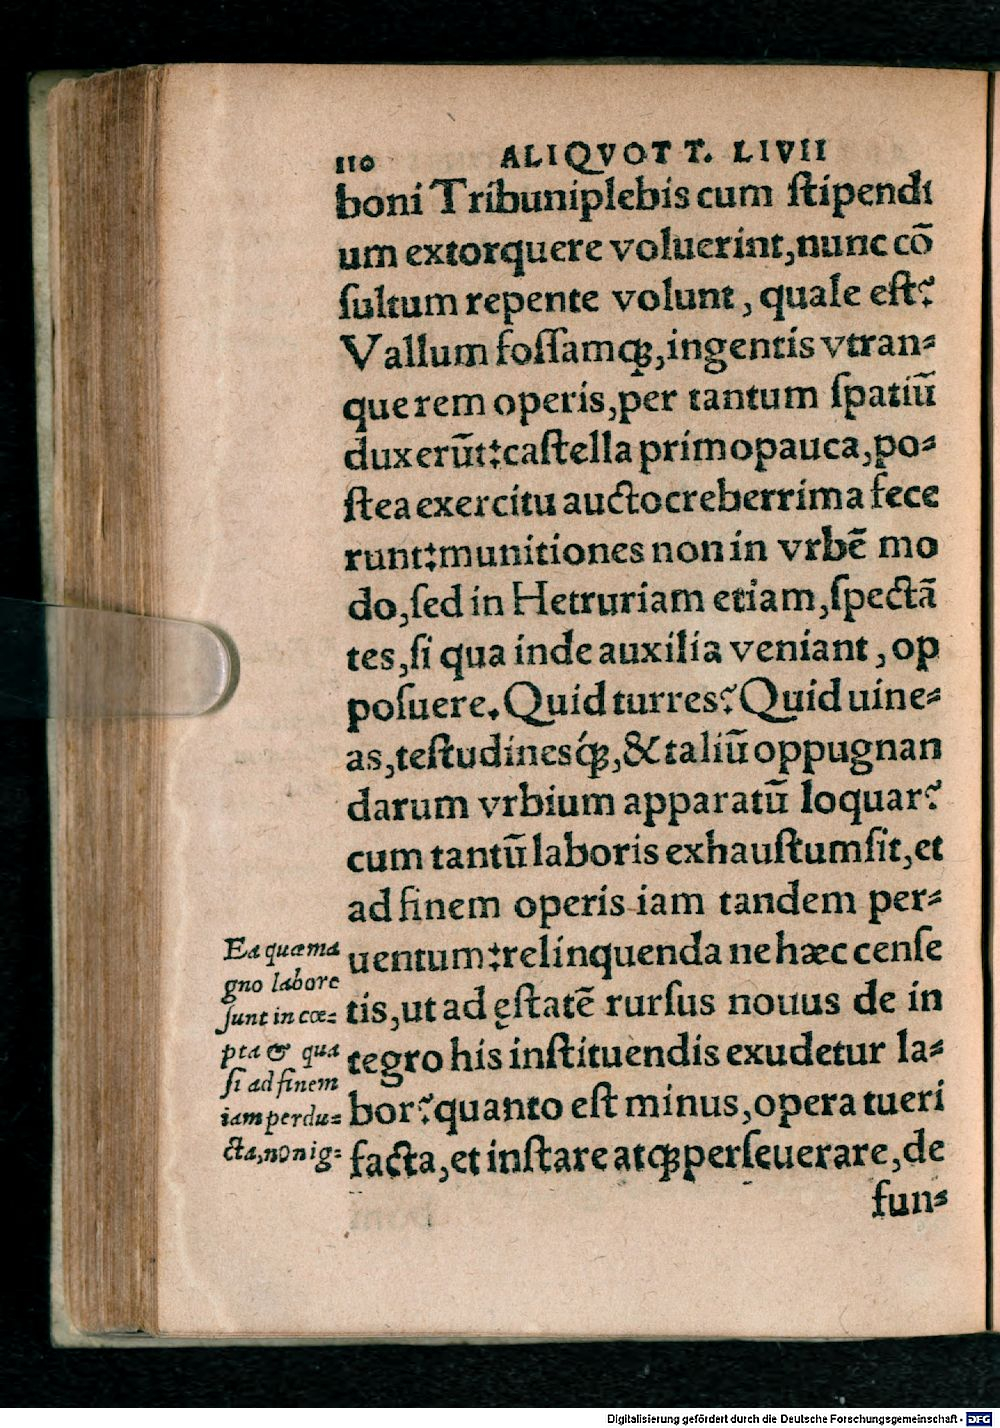 110 ALIQVOT T. LIVII
boni Tribuni plebis cum ſtipendi
um extorquere voluerint, nunc cõ
ſultum repente volunt, quale eſt?
Vallum foſſamqꝫ, ingentis vtran⸗
que rem operis, per tantum ſpatiũ
duxerũt: caſtella primo pauca, po⸗
ſtea exercitu aucto creberrima fece
runt: munitiones non in vrbẽ mo
do, ſed in Hetruriam etiam, ſpectã
tes, ſi qua inde auxilia veniant, op
poſuere. Quid turres? Quid uine⸗
as, teſtudinesq́ꝫ, & taliũ oppugnan
darum vrbium apparatũ loquar?
cum tantũ laboris exhauſtum ſit, et
ad finem operis iam tandem per⸗
uentum: relinquenda ne hæc cenſe
tis, ut ad ęſtatẽ rurſus nouus de in
tegro his inſtituendis exudetur la⸗
bor? quanto eſt minus, opera tueri
facta, et inſtare atqꝫ perſeuerare, de
fun⸗
Ea quæ ma
gno labore
ſunt in cœ⸗
pta & qua
ſi ad finem
iam perdu⸗
cta, non ig⸗
Digitalisierung gefördert durch die Deutsche Forschungsgemeinschaft - DFG